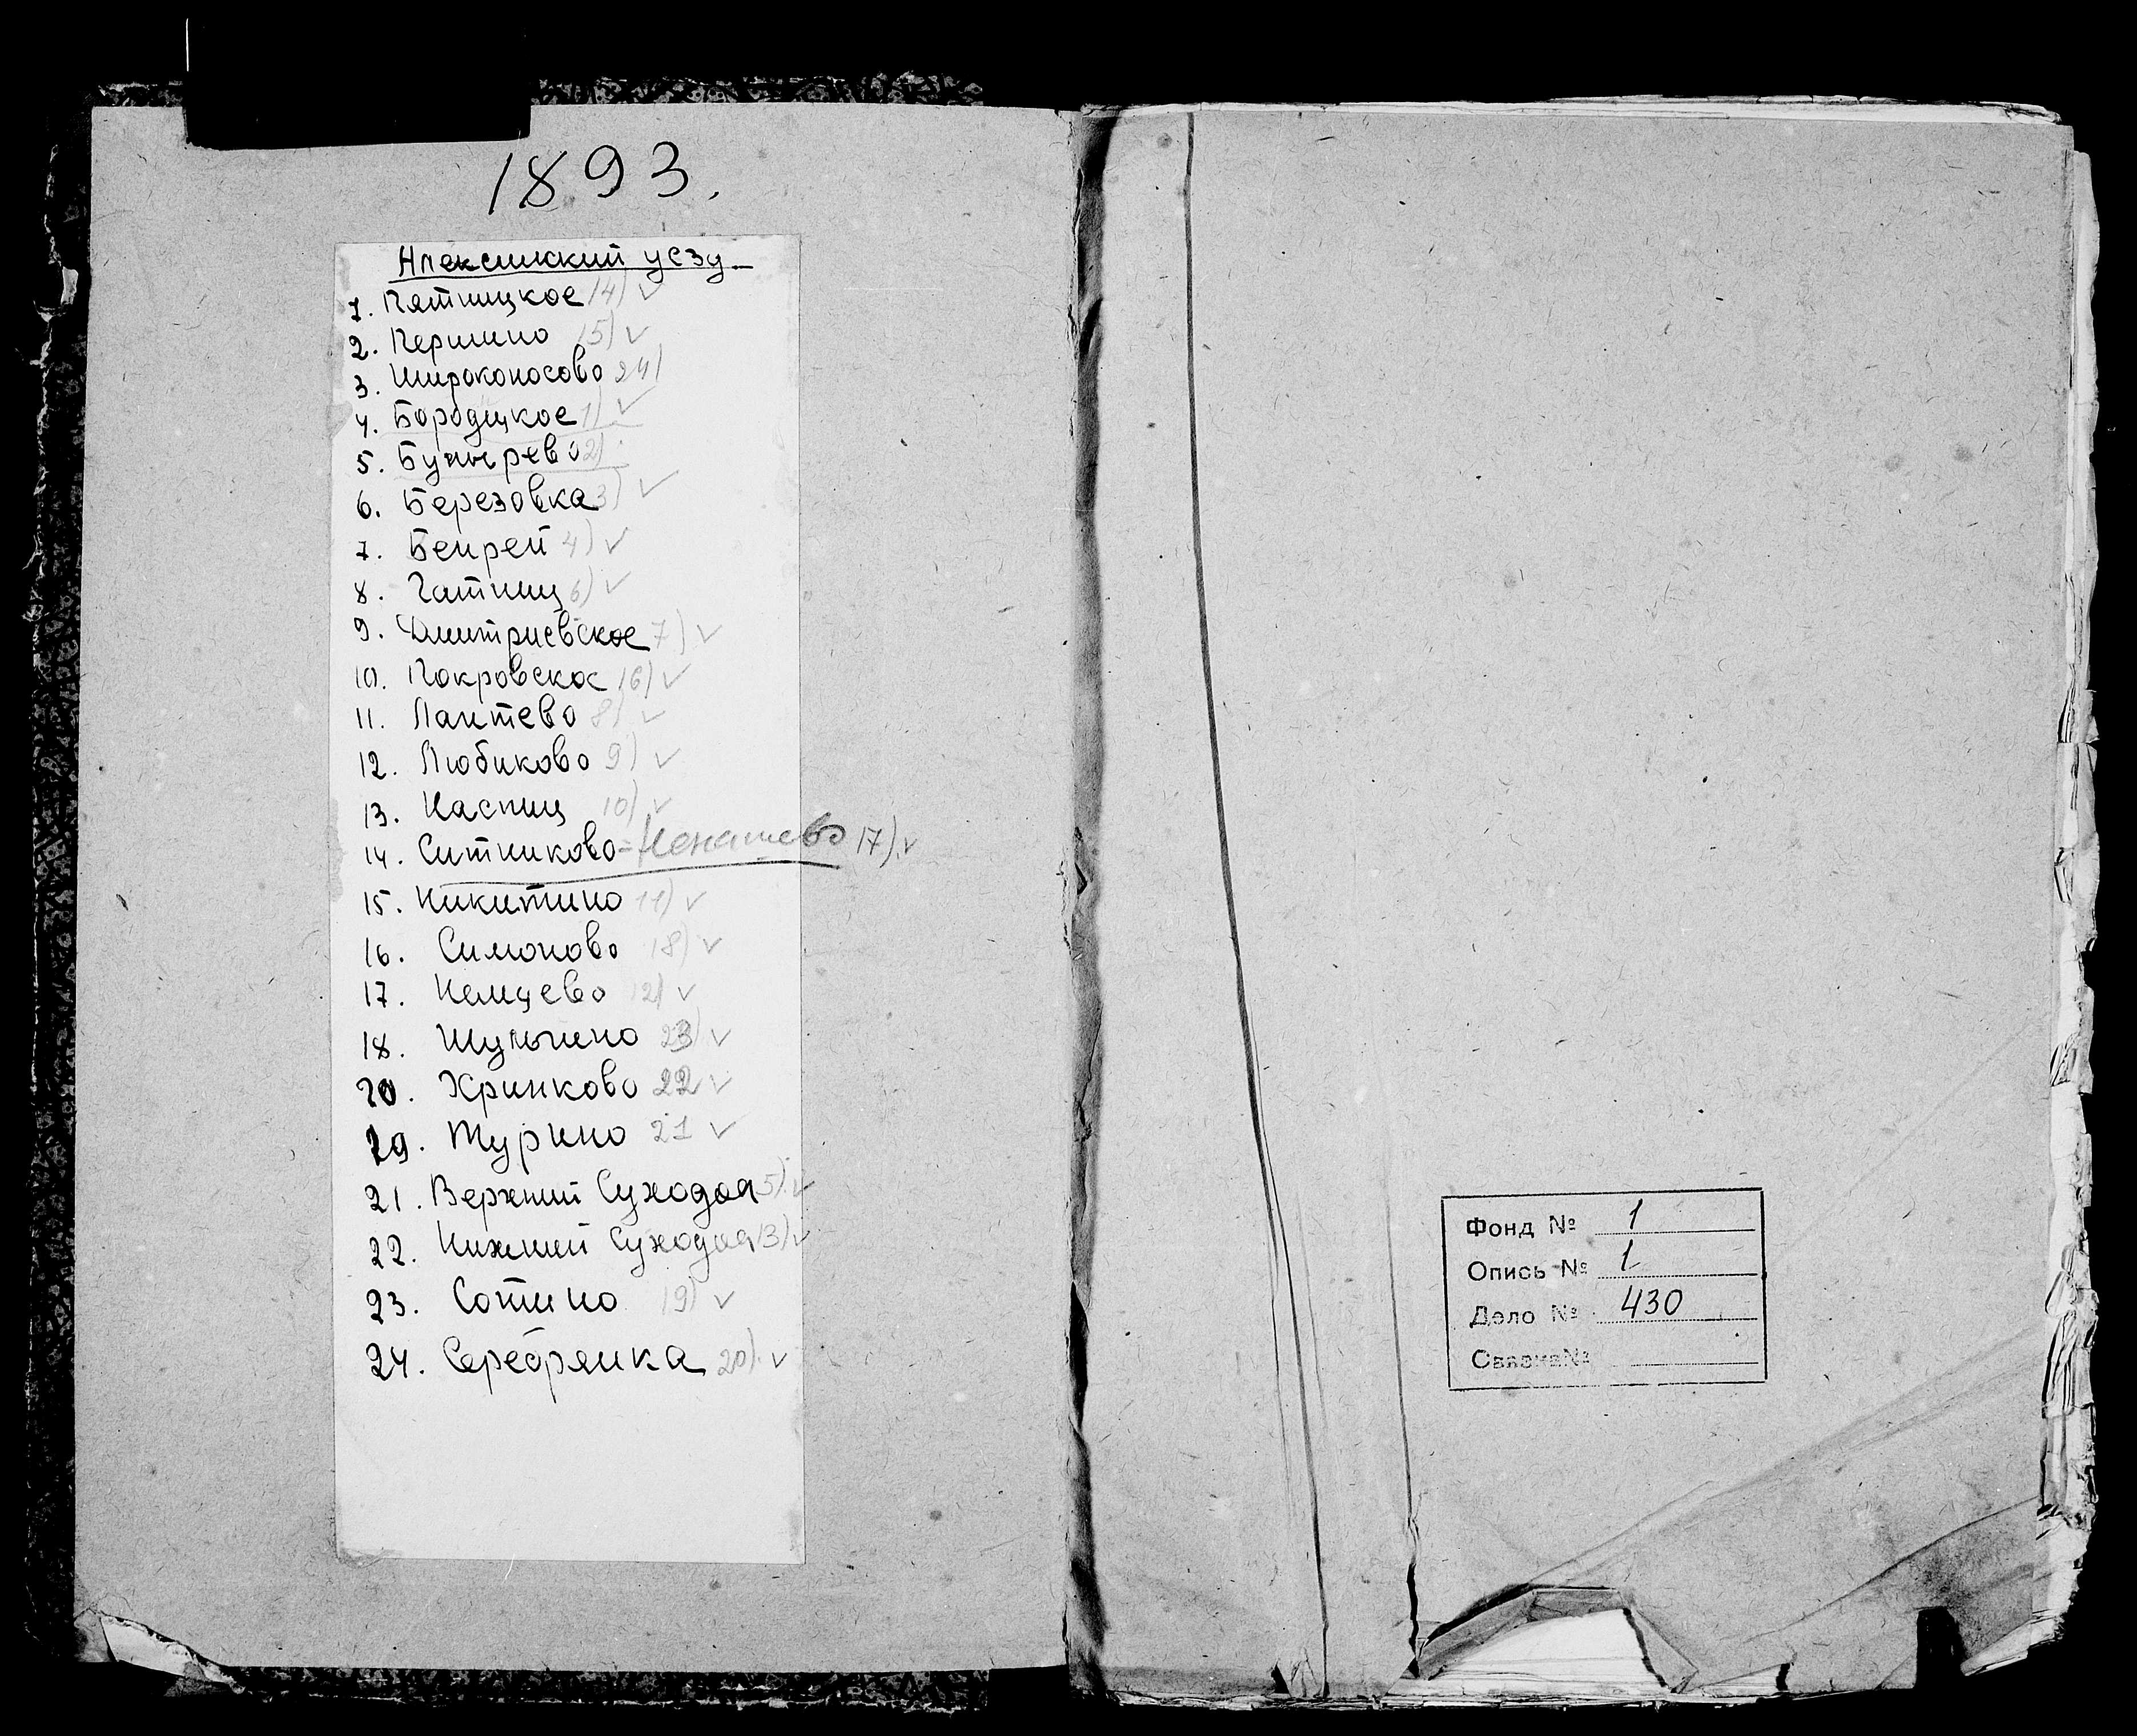 1893.
Алексинский уезд
1. Пятницкое 14) ✓
2. Першино 15) ✓
3. Широконосово 24)
4. Бородицкое 1) ✓
5. Бунырево 2)
6. Березовка 3) ✓
7. Бенрей 4) ✓
8. Гатниц 6) ✓
9. Дмитриевское 7) ✓
10. Покровское 16) ✓
11. Лаптево 8) ✓
12. Любиково 9) ✓
13. Наспищ 10) ✓
14. Ситниково = Ненашево 17). ✓
15. Никитино 11) ✓
16. Симоново 18) ✓
17. Немцево 12) ✓
18. Шульгино 23) ✓
20. Хринково 22 ✓
19. Турино 21 ✓
21. Верхний Суходол 5). ✓
22. Нижний Суходол 13) ✓
23. Сотино 19) ✓
24. Серебрянка 20). ✓
Фонд № 1
Опись № 1
Дело № 430
Связка №